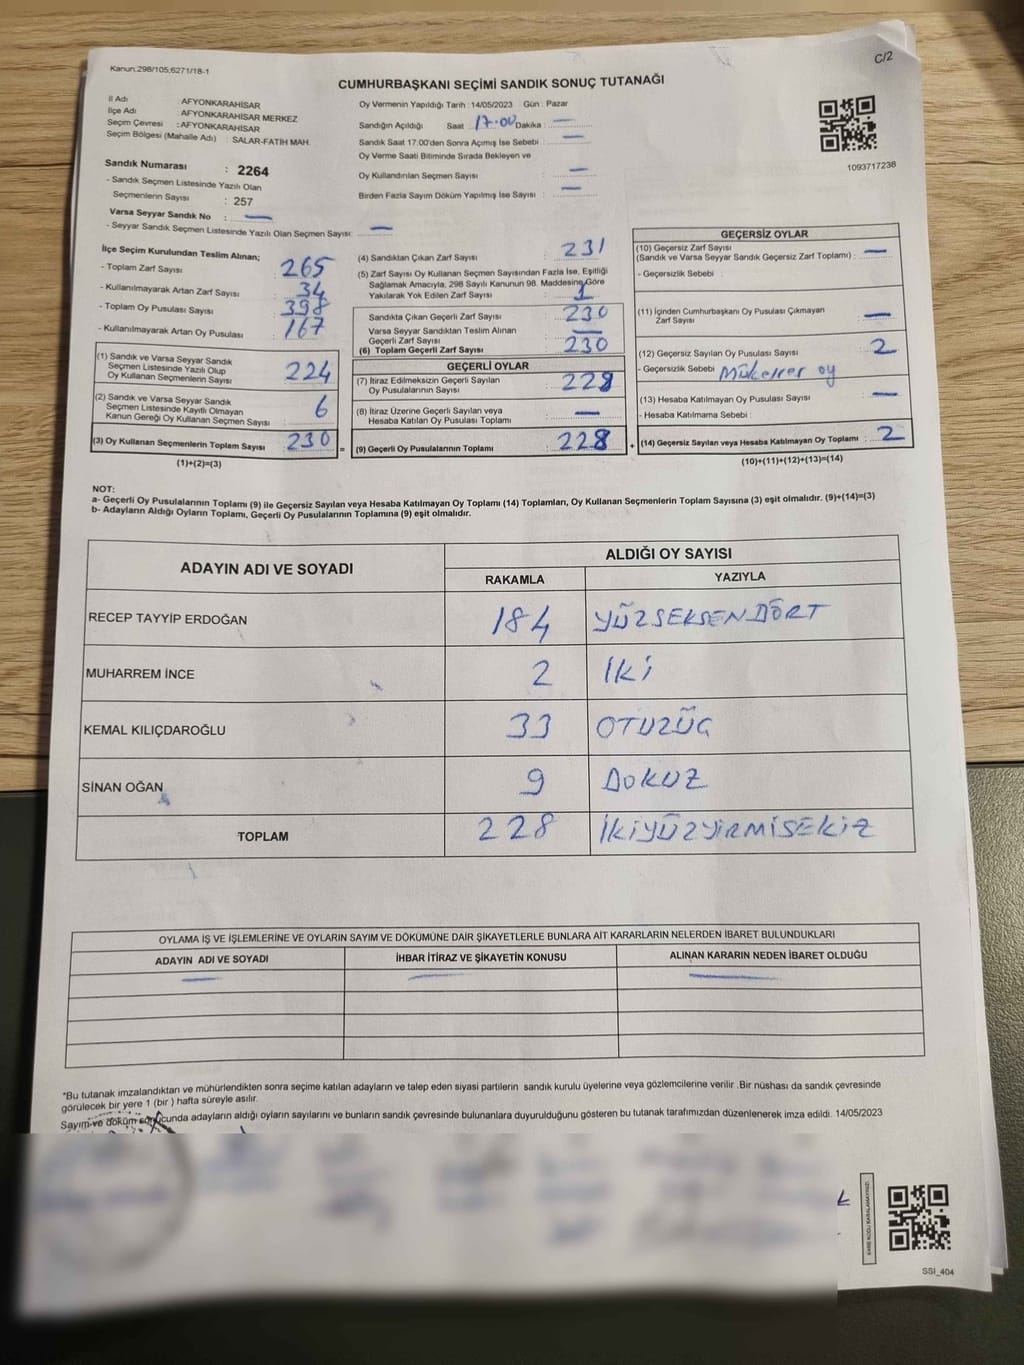 C/2
Kanun:298/105;6271/18-1
CUMHURBAŞKANI SEÇİMİ SANDIK SONUÇ TUTANAĞI
İl Adı : AFYONKARAHİSAR
İlçe Adı : AFYONKARAHİSAR MERKEZ
Seçim Çevresi : AFYONKARAHİSAR
Seçim Bölgesi (Mahalle Adı) : SALAR-FATİH MAH.
Sandık Numarası : 2264
- Sandık Seçmen Listesinde Yazılı Olan
Seçmenlerin Sayısı : 257
Varsa Seyyar Sandık No : —
- Seyyar Sandık Seçmen Listesinde Yazılı Olan Seçmen Sayısı: —
Oy Vermenin Yapıldığı Tarih : 14/05/2023 Gün : Pazar
Sandığın Açıldığı Saat 17.00 Dakika : —
Sandık Saat 17:00'den Sonra Açımış İse Sebebi : —
Oy Verme Saati Bitiminde Sırada Bekleyen ve
Oy Kullandırılan Seçmen Sayısı : —
Birden Fazla Sayım Döküm Yapılmış İse Sayısı : —
1093717238
İlçe Seçim Kurulundan Teslim Alınan;
- Toplam Zarf Sayısı : 265
- Kullanılmayarak Artan Zarf Sayısı : 34
- Toplam Oy Pusulası Sayısı : 398
- Kullanılmayarak Artan Oy Pusulası : 167
(1) Sandık ve Varsa Seyyar Sandık
Seçmen Listesinde Yazılı Olup
Oy Kullanan Seçmenlerin Sayısı : 224
(2) Sandık ve Varsa Seyyar Sandık
Seçmen Listesinde Kayıtlı Olmayan
Kanun Gereği Oy Kullanan Seçmen Sayısı : 6
(3) Oy Kullanan Seçmenlerin Toplam Sayısı : 230 =
(1)+(2)=(3)
(4) Sandıktan Çıkan Zarf Sayısı : 231
(5) Zarf Sayısı Oy Kullanan Seçmen Sayısından Fazla İse, Eşitliği
Sağlamak Amacıyla, 298 Sayılı Kanunun 98. Maddesine Göre
Yakılarak Yok Edilen Zarf Sayısı : 1
Sandıkta Çıkan Geçerli Zarf Sayısı : 230
Varsa Seyyar Sandıktan Teslim Alınan
Geçerli Zarf Sayısı : —
(6) Toplam Geçerli Zarf Sayısı : 230
GEÇERLİ OYLAR
(7) İtiraz Edilmeksizin Geçerli Sayılan
Oy Pusulalarının Sayısı : 228
(8) İtiraz Üzerine Geçerli Sayılan veya
Hesaba Katılan Oy Pusulası Toplamı : —
(9) Geçerli Oy Pusulalarının Toplamı : 228 +
GEÇERSİZ OYLAR
(10) Geçersiz Zarf Sayısı
(Sandık ve Varsa Seyyar Sandık Geçersiz Zarf Toplamı) : —
- Geçersizlik Sebebi :
(11) İçinden Cumhurbaşkanı Oy Pusulası Çıkmayan
Zarf Sayısı : —
(12) Geçersiz Sayılan Oy Pusulası Sayısı : 2
- Geçersizlik Sebebi : Mükerrer oy
(13) Hesaba Katılmayan Oy Pusulası Sayısı : —
- Hesaba Katılmama Sebebi :
(14) Geçersiz Sayılan veya Hesaba Katılmayan Oy Toplamı : 2
(10)+(11)+(12)+(13)=(14)
NOT:
a- Geçerli Oy Pusulalarının Toplamı (9) ile Geçersiz Sayılan veya Hesaba Katılmayan Oy Toplamı (14) Toplamları, Oy Kullanan Seçmenlerin Toplam Sayısına (3) eşit olmalıdır. (9)+(14)=(3)
b- Adayların Aldığı Oyların Toplamı, Geçerli Oy Pusulalarının Toplamına (9) eşit olmalıdır.
ADAYIN ADI VE SOYADI
ALDIĞI OY SAYISI
RAKAMLA YAZIYLA
RECEP TAYYİP ERDOĞAN 184 YÜZSEKSENDÖRT
MUHARREM İNCE 2 İKİ
KEMAL KILIÇDAROĞLU 33 OTUZÜÇ
SİNAN OĞAN 9 DOKUZ
TOPLAM 228 İKİYÜZYİRMİSEKİZ
OYLAMA İŞ VE İŞLEMLERİNE VE OYLARIN SAYIM VE DÖKÜMÜNE DAİR ŞİKAYETLERLE BUNLARA AİT KARARLARIN NELERDEN İBARET BULUNDUKLARI
ADAYIN ADI VE SOYADI İHBAR İTİRAZ VE ŞİKAYETİN KONUSU ALINAN KARARIN NEDEN İBARET OLDUĞU
— — —
*Bu tutanak imzalandıktan ve mühürlendikten sonra seçime katılan adayların ve talep eden siyasi partilerin sandık kurulu üyelerine veya gözlemcilerine verilir .Bir nüshası da sandık çevresinde
görülecek bir yere 1 (bir ) hafta süreyle asılır.
Sayım ve döküm sonucunda adayların aldığı oyların sayılarını ve bunların sandık çevresinde bulunanlara duyurulduğunu gösteren bu tutanak tarafımızdan düzenlenerek imza edildi. 14/05/2023
KARE KODU KARALAMAYINIZ!
SSI_404